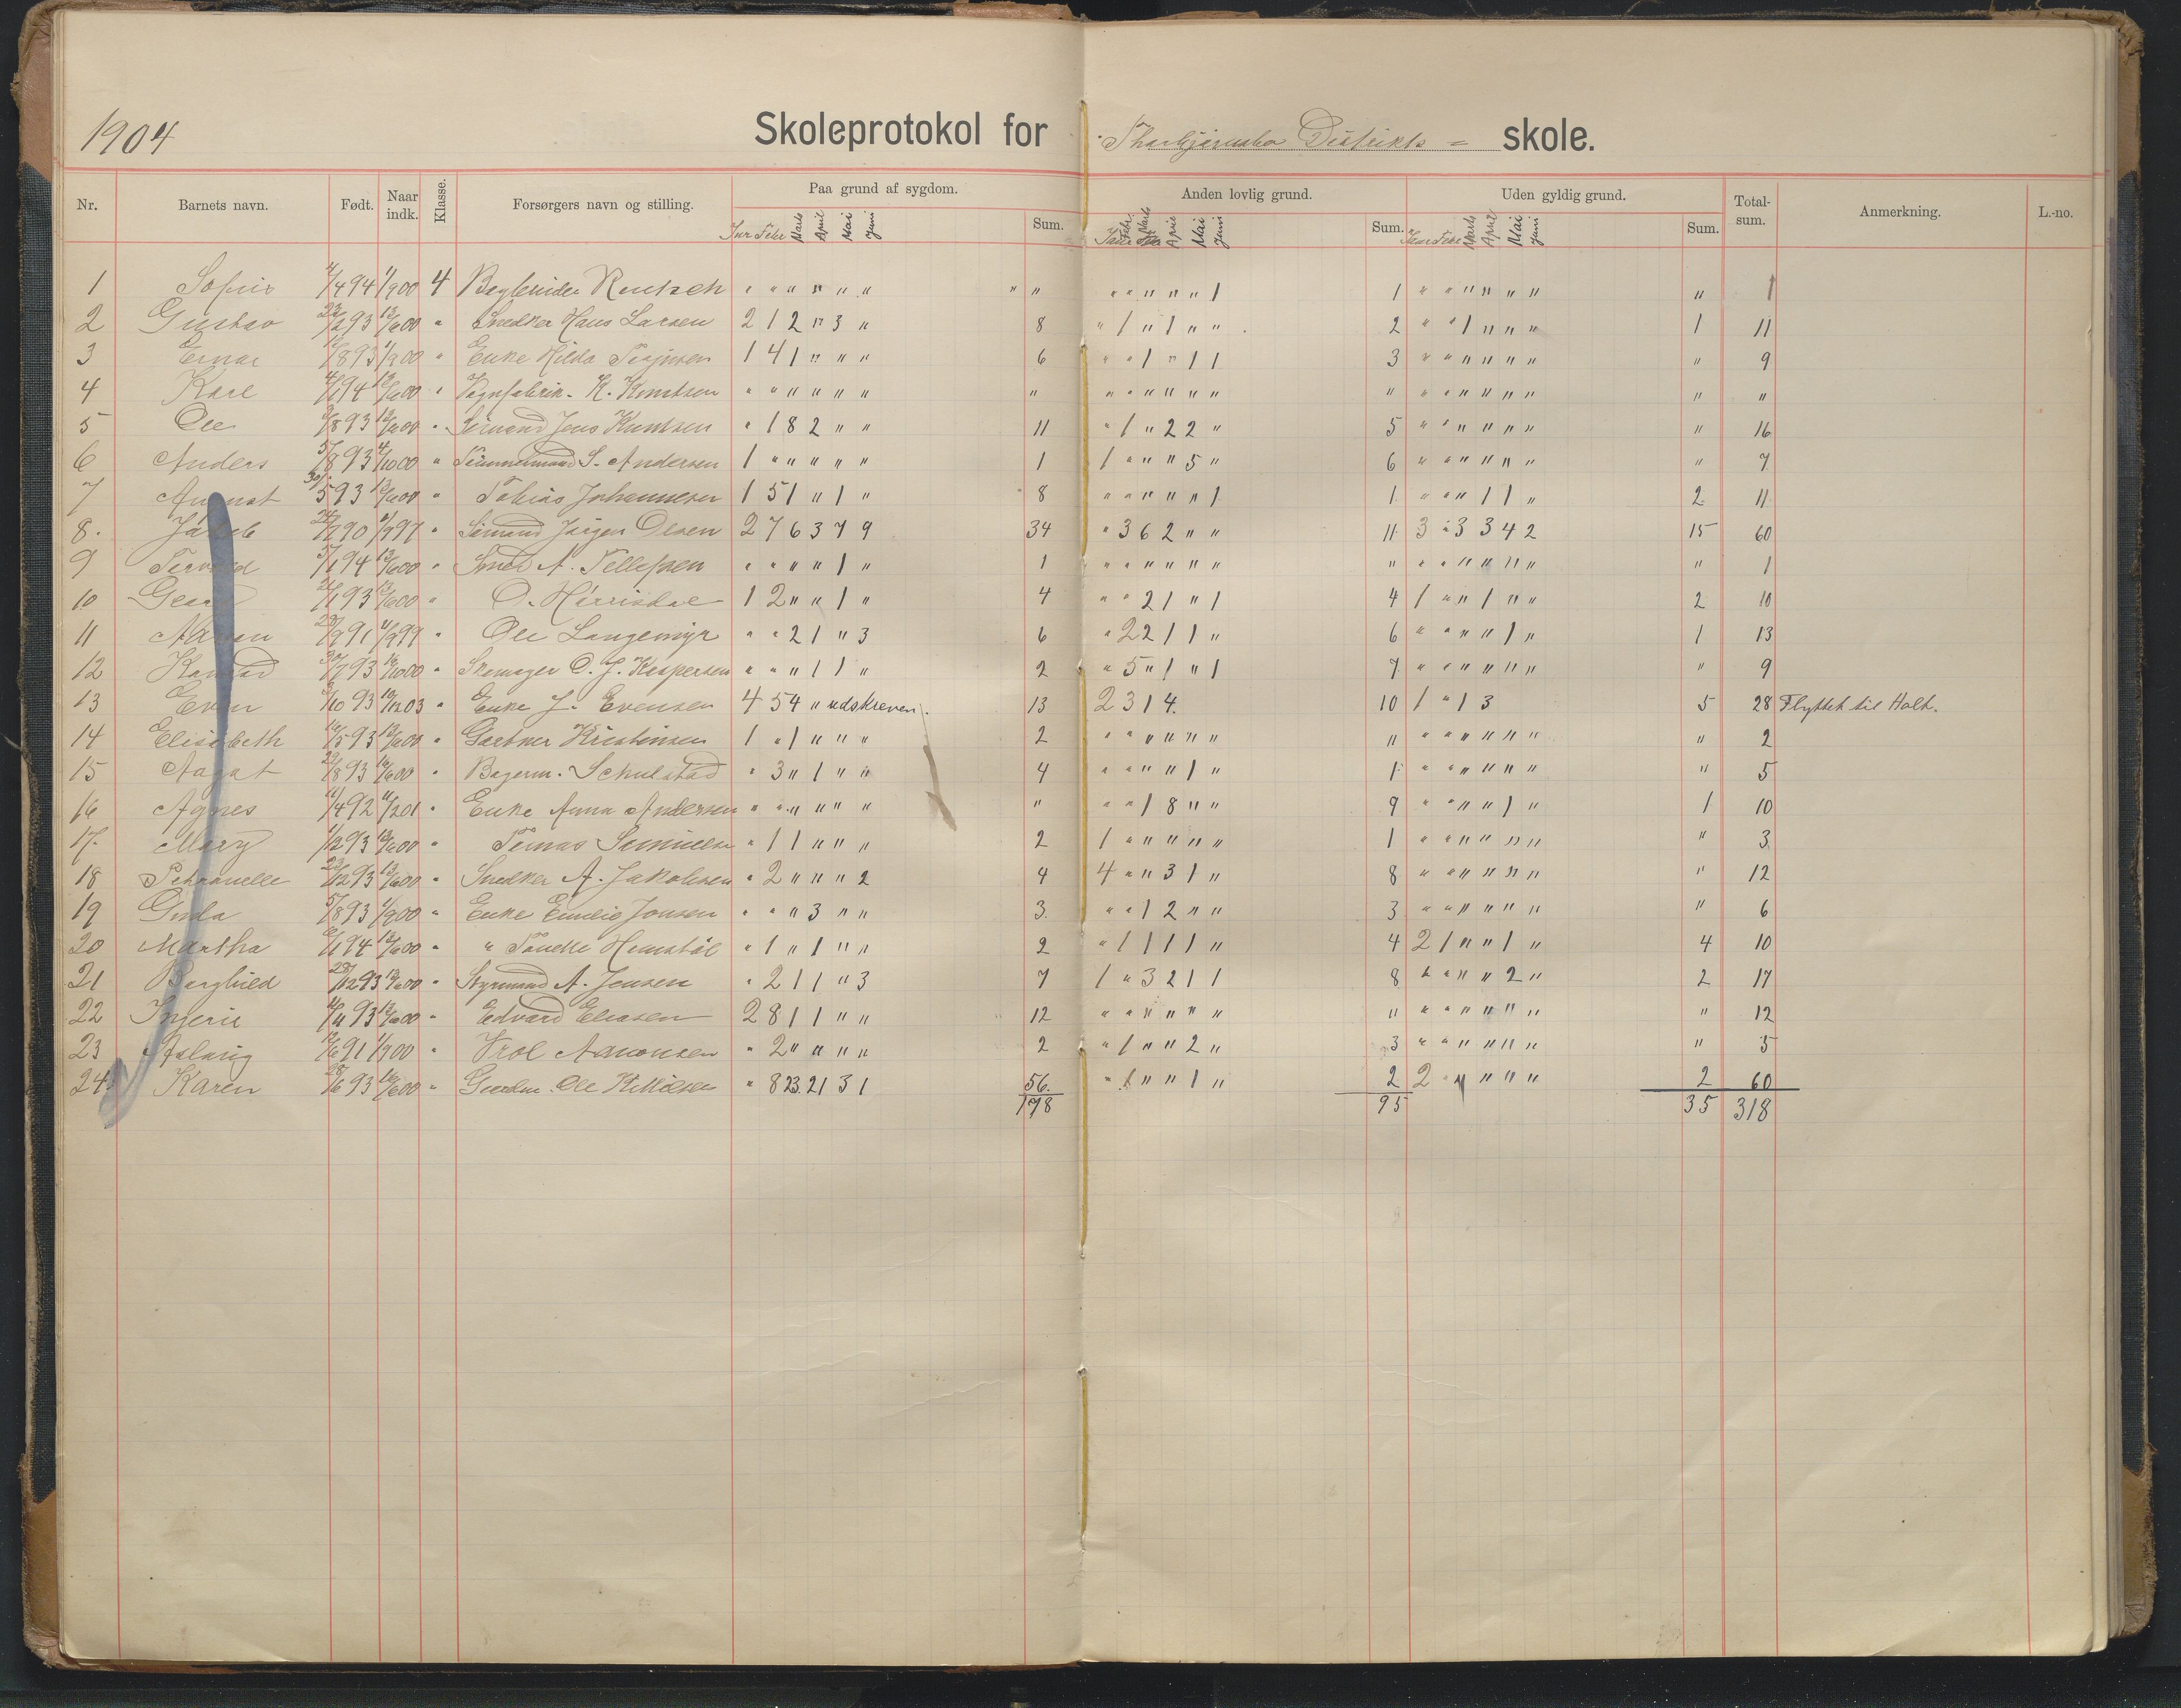 1904 Skoleprotokol for Thorbjørnsbo Distrikts = skole.
Nr. Barnets navn. Født. Naar indk. Klasse. Forsørgers navn og stilling. Paa grund af sygdom. Sum. Anden lovlig grund. Sum. Uden gyldig grund. Sum. Total-sum. Anmerkning. L.-no.
Jan Febr Marts April Mai Juni Jan Febr. Marts April Mai Juni Jan Febr Marts April Mai Juni
1 Sofie 4/4 94 1/9 00 4 " " " " " " " " " " " " 1 1 " " " " " " " 1
2 Gustav 93 13/6 00 " Snedker Hans Larsen 2 1 2 " 3 " 8 " 1 " 1 " " 2 " " 1 " " " 1 11
3 Einar 93 1/9 00 " Enke Hilda 1 4 1 " " " 6 " " 1 " 1 1 3 " " " " " " " 9
4 Karl 94 13/6 00 " Vognfabrik. K. Knutsen " " " " " " " " " " " " " " " " " " " " " "
5 Ole 8 93 13/6 00 " Sømand Jens Knutsen " 1 8 2 " " 11 " 1 " 2 2 " 5 " " " " " " " 16
6 Anders 5/8 93 4/10 00 " Tømmermand S. Andersen 1 " " " " " 1 1 " " " 5 " 6 " " " " " " " 7
7 August 30/5 93 13/6 00 " Tobias Johannesen 1 5 1 " 1 " 8 " " " " " 1 1 " " " 1 1 " 2 11
8. Jakob 90 97 " Sømand Jørgen Olsen 2 7 6 3 7 9 34 " 3 6 2 " " 11 3 " 3 3 4 2 15 60
9 5/1 94 13/6 00 " Smed A. Tellefsen " " " " 1 " 1 " " " " " " " " " " " " " " 1
10 Georg 93 13/6 00 " O. 1 2 " " 1 " 4 " " 2 1 " 1 4 1 " " 1 " " 2 10
11 91 99 " Ole Langemyr " " 2 1 " 3 6 " 2 2 1 1 " 6 " " " " 1 " 1 13
12 Konrad 30/7 93 " Skomager O. J. Kaspersen " " " 1 1 " 2 " 5 " 1 " 1 7 " " " " " " " 9
13 Even 10 93 03 " Enke J. Evensen 4 5 4 " udskreven. 13 2 3 1 4. 10 1 " 1 3 5 28 Flyttet til Holt.
14 Elisabeth 5 93 13/6 00 " Gartner Kristensen 1 " 1 " " " 2 " " " " " " " " " " " " " " 2
15 Aagot 8 93 " Bagerm. Schulstad " 3 " 1 " " 4 " " " " 1 " 1 " " " " " " " 5
16 Agnes 11/4 92 11/2 01 " Enke Anna Andersen " " " " " " " " " 1 8 " " 9 " " " " 1 " 1 10
17. Mary 93 13/6 00 " " 1 1 " " " 2 1 " " " " " 1 " " " " " " " 3
18 Petronelle 23/12 93 13/6 00 " Snedker A. Jakobsen " 2 " " " 2 4 4 " " 3 1 " 8 " " " " " " " 12
19 5/8 93 1/9 00 " Enke Emilie Jonsen " " " 3 " " 3. " " 1 2 " " 3 " " " " " " " 6
20 Martha 1 94 13/6 00 " " " 1 " 1 " " 2 " 1 1 1 1 " 4 2 1 " " 1 " 4 10
21 Borghild 28/12 93 13/6 00 " Styrmand A. Jensen " 2 1 1 " 3 7 1 " 3 2 1 1 8 " " " " 2 " 2 17
22 Ingerie 93 13/6 00 " Edvard Eliasen 2 8 1 1 " " 12 " " " " " " " " " " " " " " 12
23 Aslaug 6 91 1/9 00 " Vrol Aanonsen " 2 " " " " 2 " 1 " " 2 " 3 " " " " " " " 5
24 Karen 28/6 93 " Ole " 8 23. 21 3 1 56. " 1 " " 1 " 2 2 " " " " " 2 60
178 95 35 318